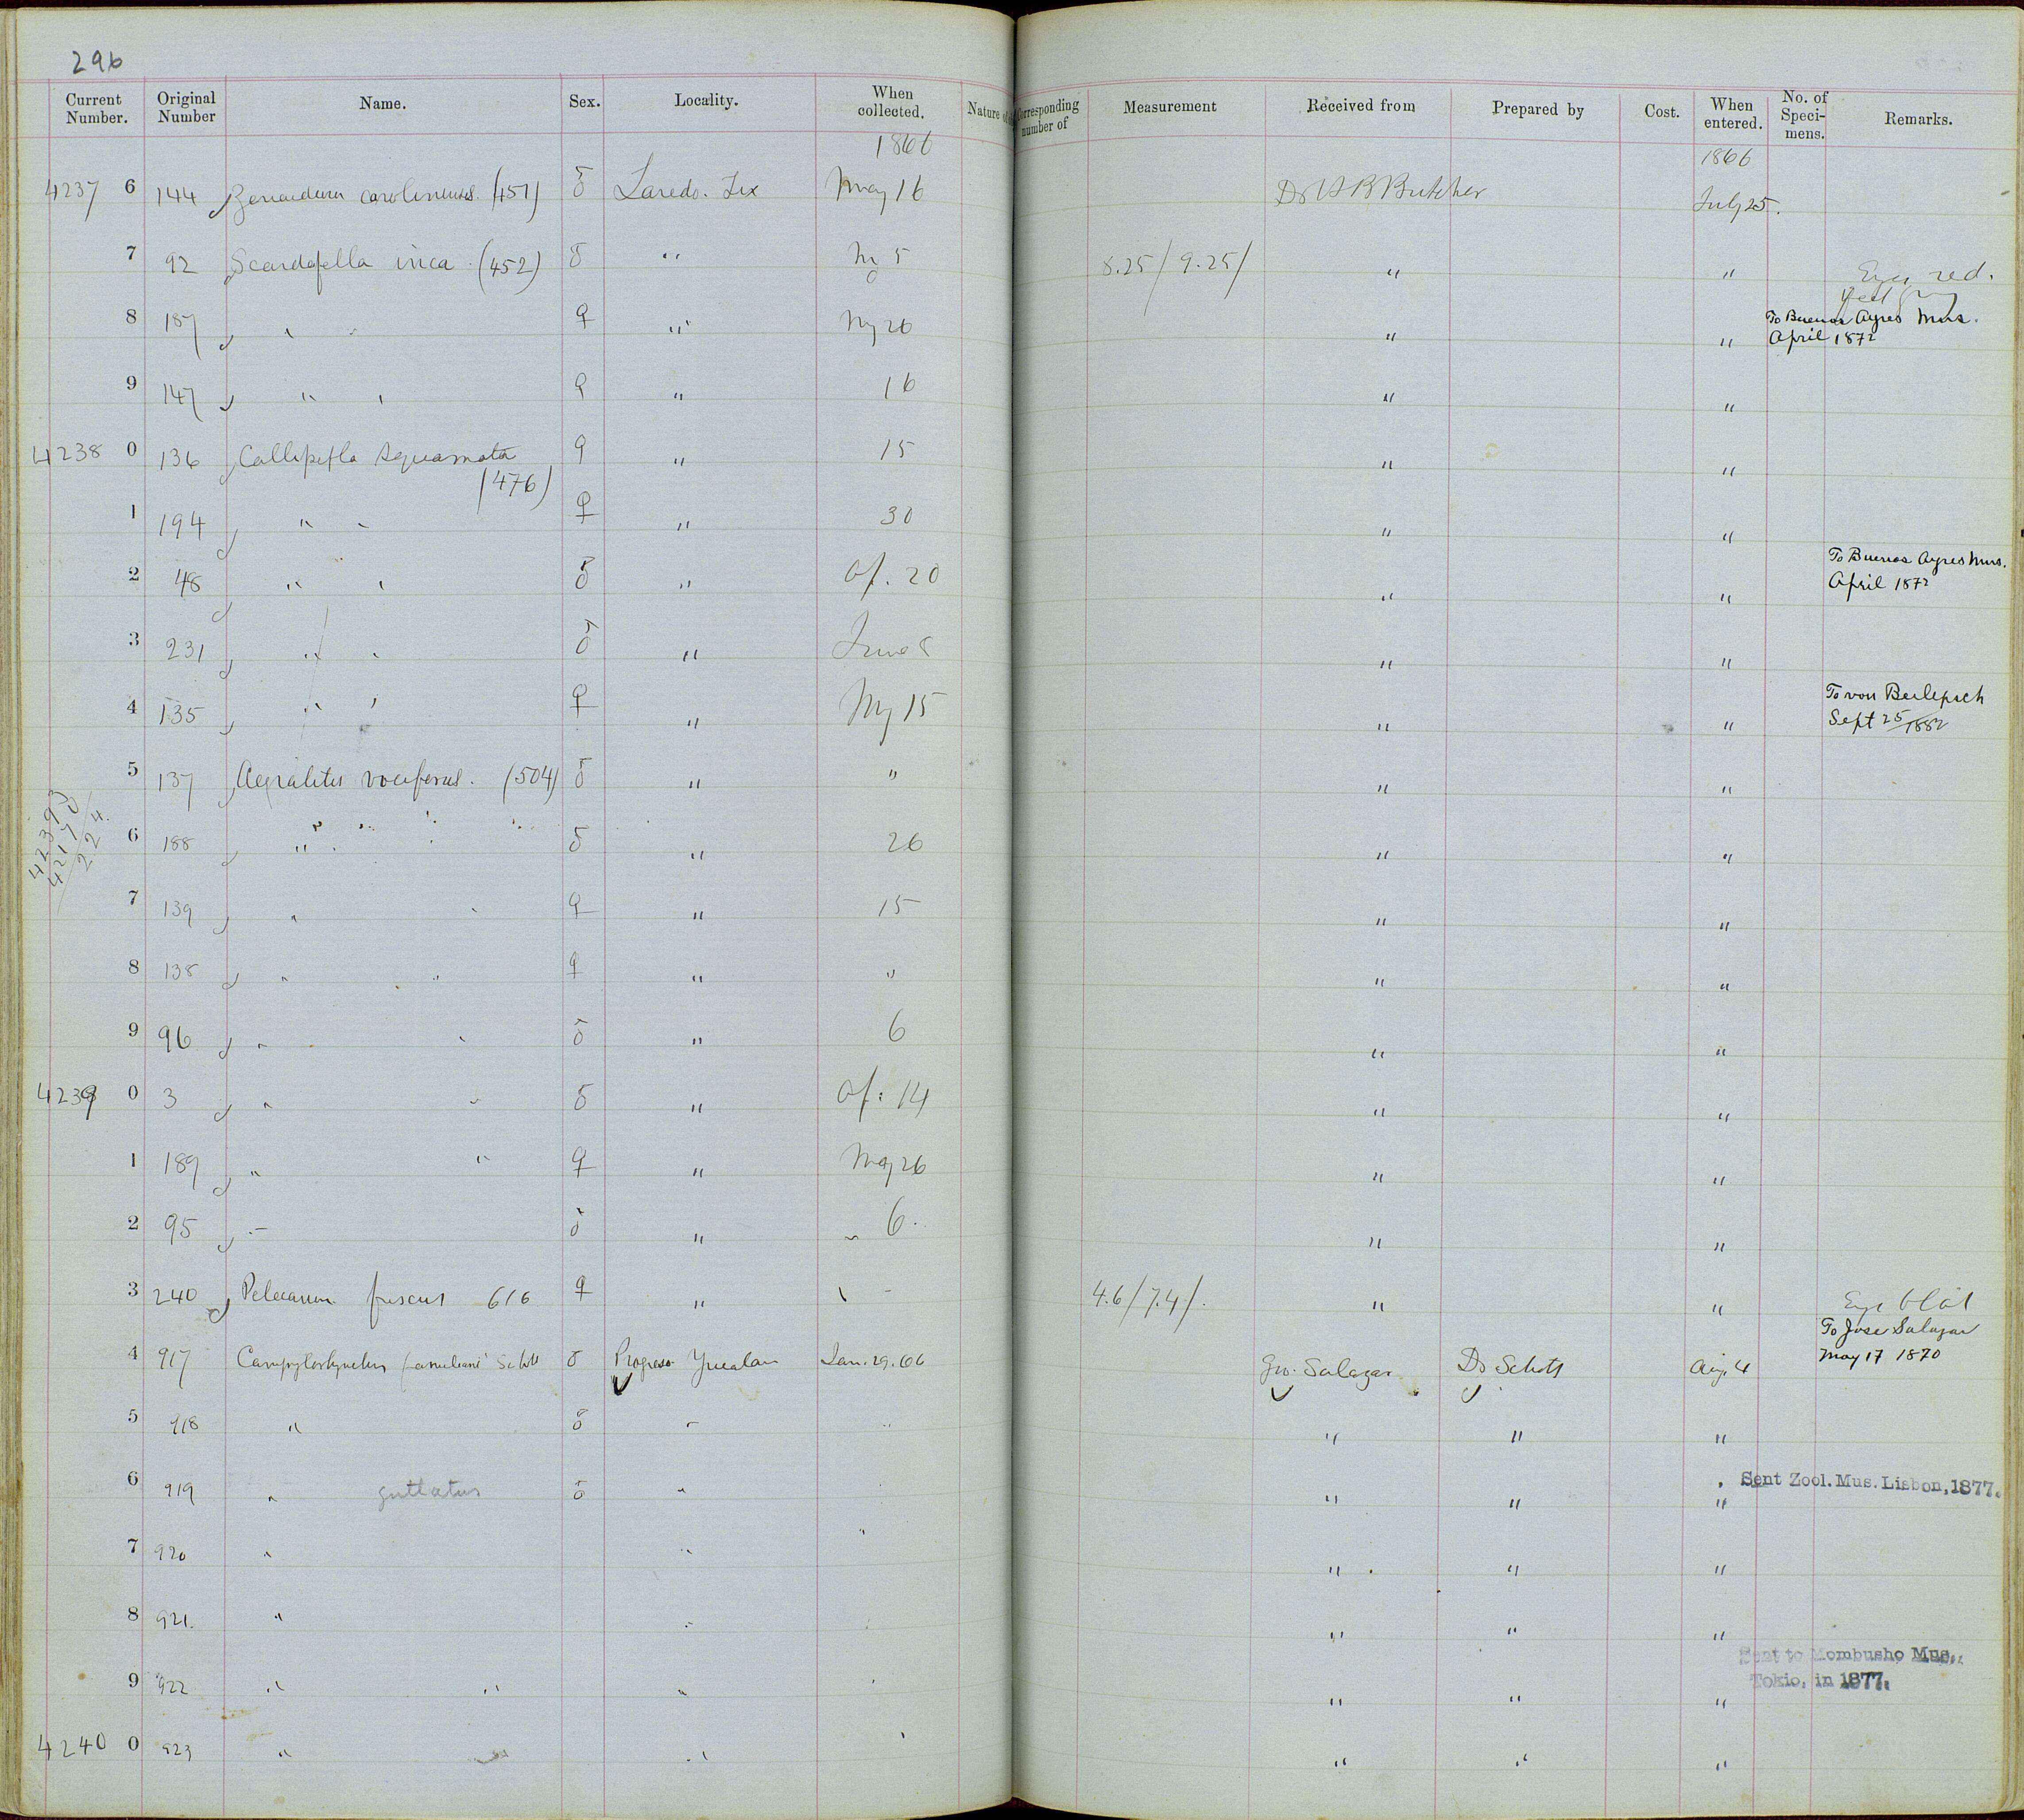 296
Current Number. Original Number Name. Sex. Locality. When collected. Nature of Corresponding number of Measurement Received from Prepared by Cost. When entered. No. of Speci-mens. Remarks.
1866 1866
4237 6 144 Zenaidura carolinensis (451) ♂ Laredo. Tex May 16 Dr H B Butcher July 25.
7 92 Scardafella inca (452) ♂ " My 5 8.25/9.25/ " " Eyes red.
feet
8 187 " " ♀ " My 26 " " To Buenos Ayres Mus.
April 1872
9 147 " " ♀ " 16 " "
4238 0 136 Callipepla squamata ♀ " 15 " "
(476)
1 194 " " ♀ " 30 " "
2 48 " " ♂ " Ap. 20 " " To Buenos Ayres Mus.
April 1872
3 231 " " ♂ " June 8 " "
4 135 " " ♀ " My 15 " " To von Berlepsch
Sept 25/1882
5 137 Aegialitis vociferus. (504) ♂ " " " "
42393
42170
224.
6 188 " " ♂ " 26 " "
7 139 " " ♀ " 15 " "
8 138 " " ♀ " " " "
9 96 " " ♂ " 6 " "
4239 0 3 " " ♂ " Ap: 14 " "
1 189 " " ♀ " May 26 " "
2 95 " ♂ " " 6. " "
3 240 Pelecanus fuscus 616 ♀ " " 4.6/7.4/. " " Eye
4 917 Campylorhynchus Schott ♂ Progreso Yucatan Jan. 29. 66 Gov. Salazar Dr Schott Aug. 4 To Jose Salazar
May 17 1870
5 918 " ♂ " " " " "
6 919 " guttatus ♂ " " " " Sent Zool. Mus. Lisbon, 1877.
7 920 " " " " " "
8 921. " " " " "
9 922 " " " " " " Sent to Mombusho Mus.,
Tokio, in 1877.
4240 0 923 " " " " " "